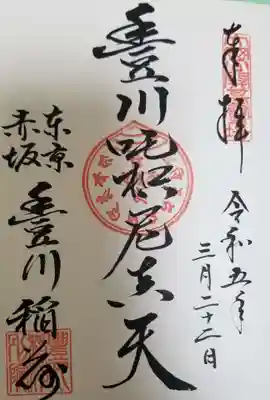 奉拝
令和五年
三月二十二日
豊川吒枳尼真天
东京
赤坂
豊川稲荷